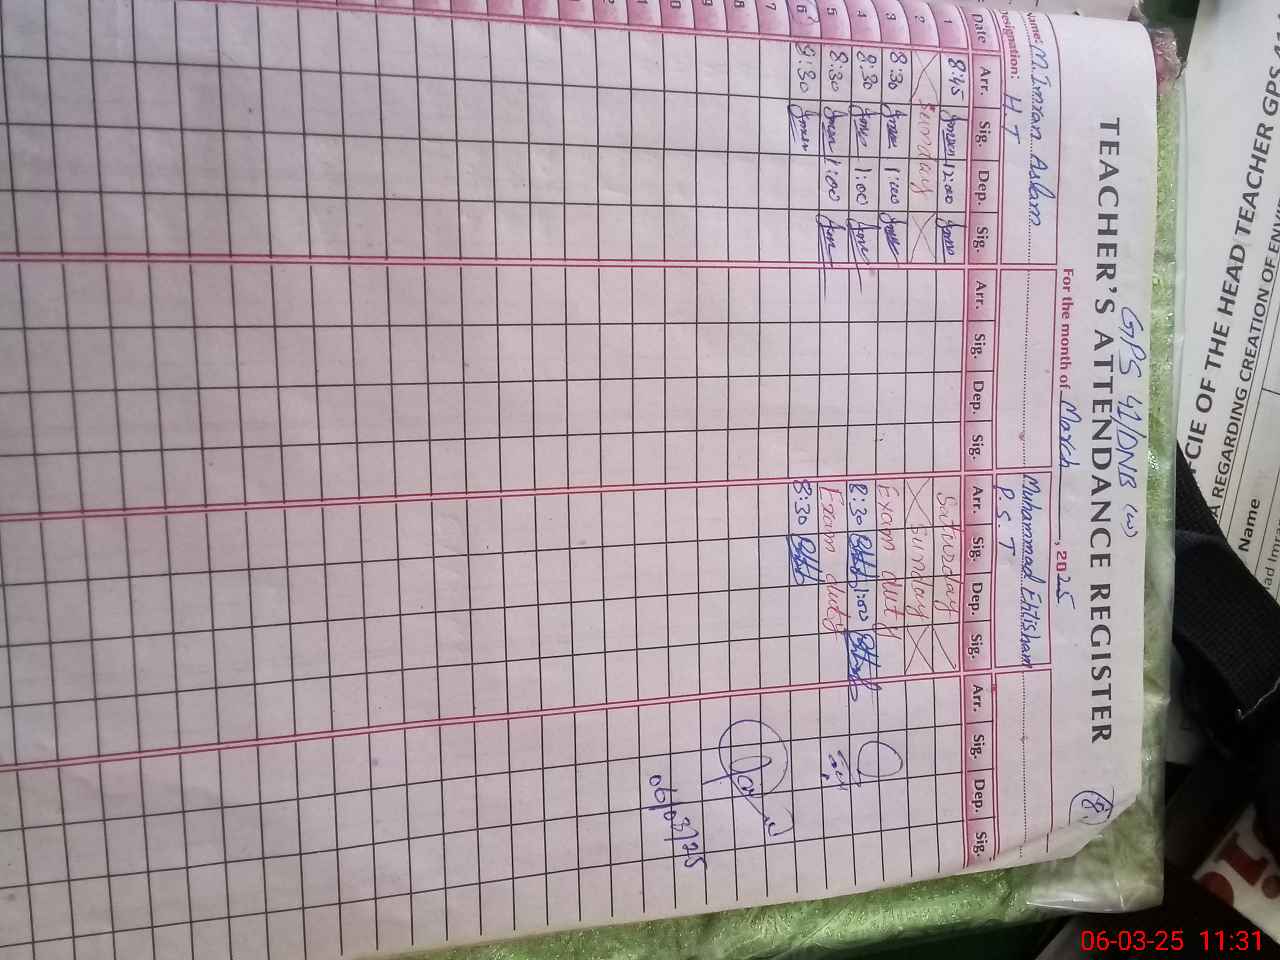 GPS 41/DNB (W)
8.
TEACHER'S ATTENDANCE REGISTER
For the month of March, 2025
Name: M. Imran Aslam Muhammad Ehtisham
Designation: H.T P.S.T
Date Arr. Sig. Dep. Sig. Arr. Sig. Dep. Sig. Arr. Sig. Dep. Sig. Arr. Sig. Dep. Sig.
1 8:45 12:00 Saturday
2 Sunday Sunday
3 8:30 1:00 Exam duty
4 8:30 1:00 8:30 1:00
5 8:30 1:00 Exam duty
6 8:30 8:30
7
8
9
10
11
12
06/03/25
CIE OF THE HEAD TEACHER GPS
A REGARDING CREATION OF
Name
06-03-25 11:31